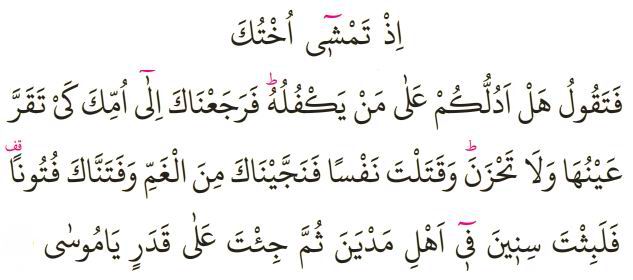 اِذْ تَمْشٖٓى اُخْتُكَ
فَتَقُولُ هَلْ اَدُلُّكُمْ عَلٰى مَنْ يَكْفُلُهُؕ فَرَجَعْنَاكَ اِلٰٓى اُمِّكَ كَىْ تَقَرَّ
عَيْنُهَا وَلَا تَحْزَنَؕ وَقَتَلْتَ نَفْسًا فَنَجَّيْنَاكَ مِنَ الْغَمِّ وَفَتَنَّاكَ فُتُونًاࣞ
فَلَبِثْتَ سِنٖينَ فٖٓى اَهْلِ مَدْيَنَ ثُمَّ جِئْتَ عَلٰى قَدَرٍ يَامُوسٰى